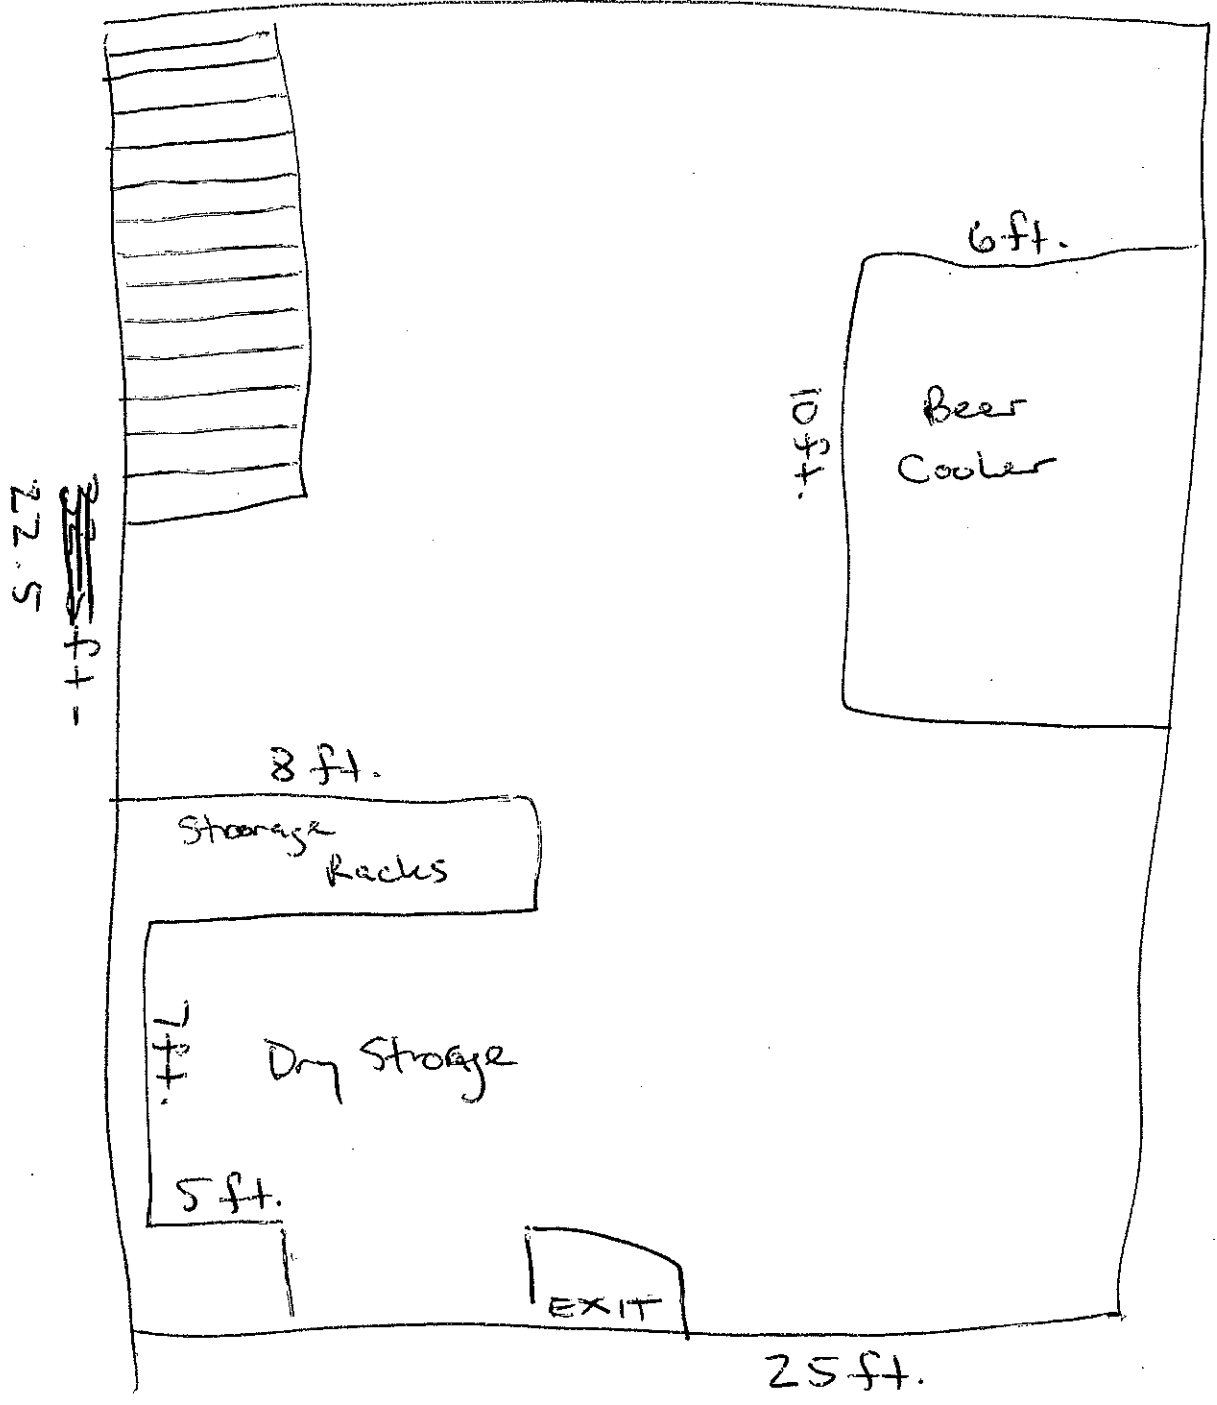 6ft.
10ft.
Beer
Cooler
22.5
ft.
8 ft.
Stoorage
Racks
7ft.
Dry Storage
5 ft.
EXIT
25 ft.